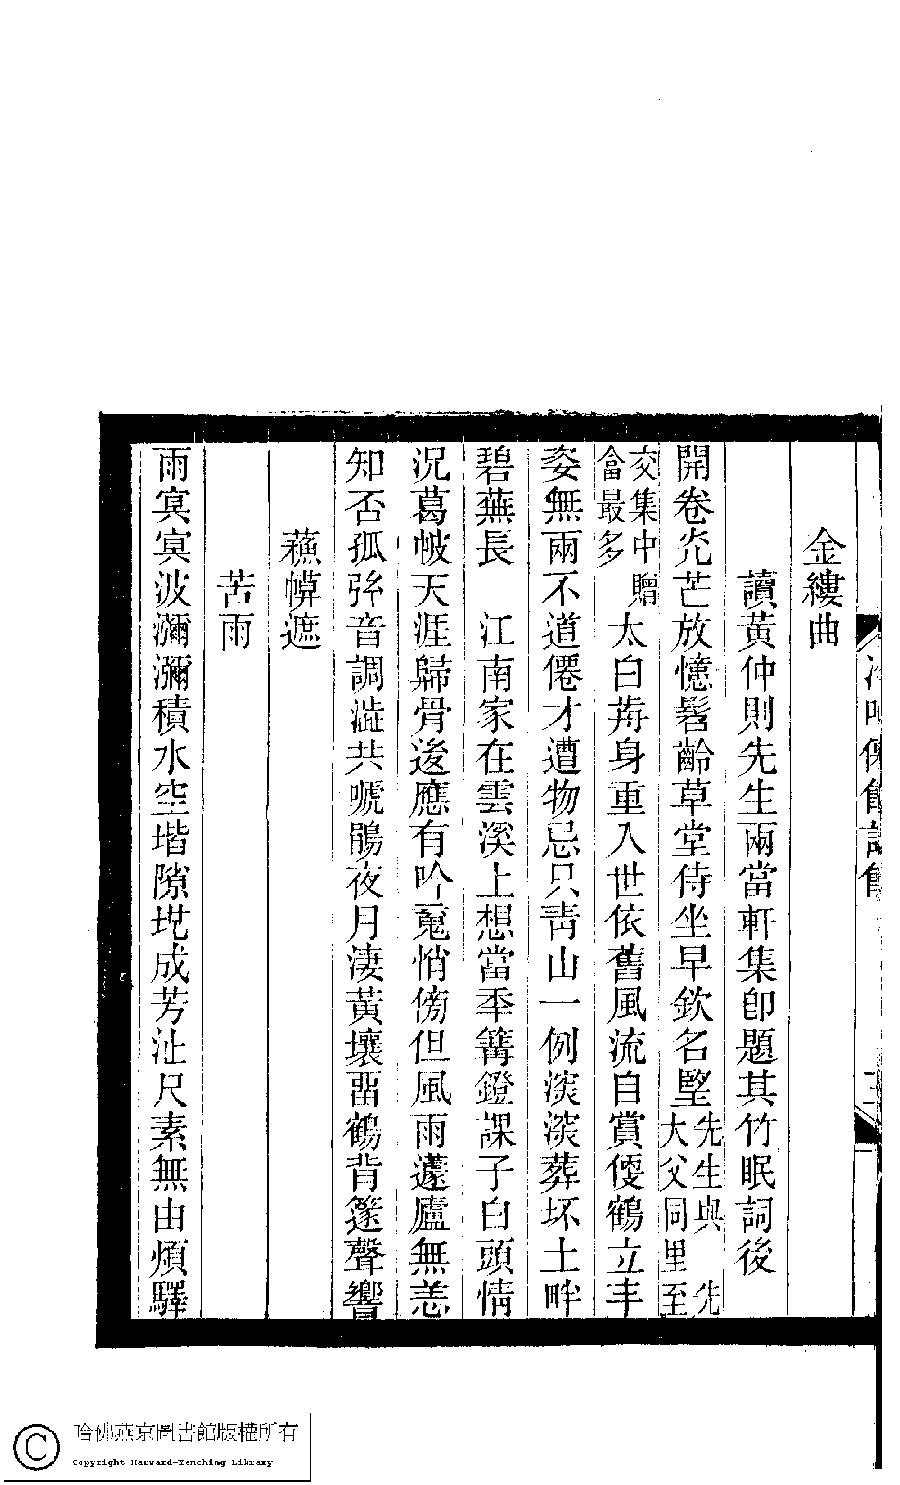 冷吟僊館詩餘
三
金縷曲
讀黃仲則先生兩當軒集卽題其竹眠詞後
開卷光芒放憶髫齡草堂侍坐早欽名朢先生與 先
大父同里至
交集中贈
畣最多太白歬身重入世依舊風流自賞便鶴立丰
姿無兩不道僊才遭物忌只靑山一例深深葬坏土畔
碧蕪長 江南家在雲溪上想當年篝鐙課子白頭情
況葛帔天涯歸骨後應有吟䰟悄傍但風雨蘧廬無恙
知否孤弦音調澁共唬鵑夜月淒黃壤畱鶴背篴聲響
蘓幙遮
苦雨
雨㝠㝠波瀰瀰積水空堦隙地成芳沚尺素無由煩驛
哈佛燕京圖書館版權所有
Copyright Harvard-Yenching Library